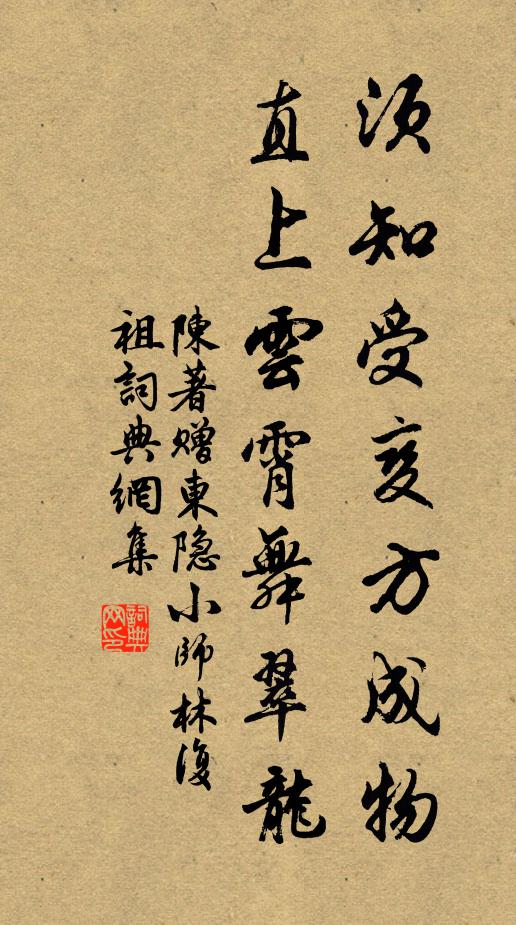 須知受变方成物
直上雲霄舞翠龍
陳著赠東隐小師林復
祖詞典網集
詞典
网印